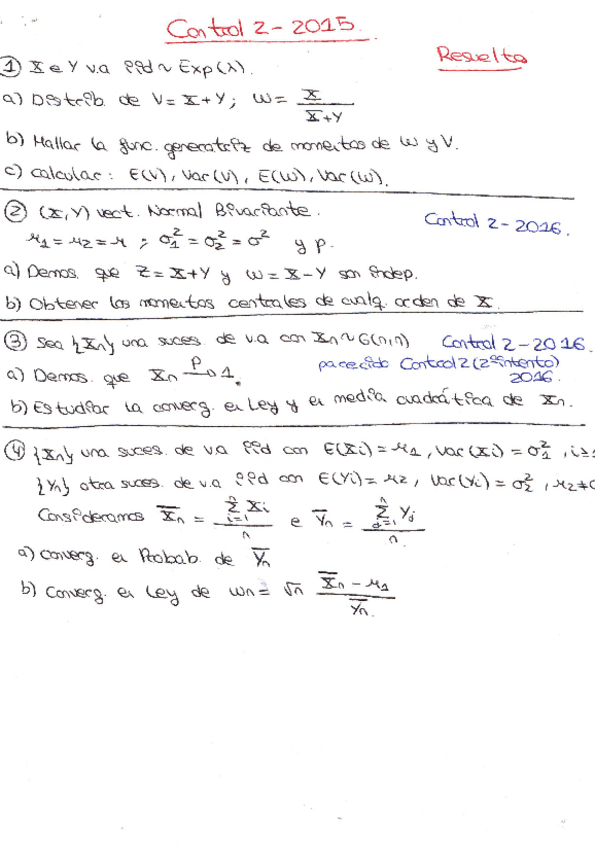 Control 2 - 2015.
Resuelto
① X e Y v.a iid ~ Exp(λ).
a) Distrib. de V = X+Y ; W = X / X+Y
b) Hallar la func. generatriz de momentos de W y V.
c) Calcular: E(V), Var(V), E(W), Var(W).
② (X,Y) vect. Normal Bivariante.
Control 2 - 2016.
μ1 = μ2 = μ ; σ1² = σ2² = σ² y ρ.
a) Demos. que Z = X+Y y W = X-Y son indep.
b) Obtener los momentos centrales de cualq. orden de X.
③ Sea {Xn} una suces. de v.a con Xn ~ G(n,n)
Control 2 - 2016.
parecido Control 2 (2º intento) 2016.
a) Demos. que Xn P→ 1.
b) Estudiar la converg. en Ley y en media cuadrática de Xn.
④ {Xn} una suces. de v.a iid con E(Xi) = μ1, Var(Xi) = σ1², i≥
{Yn} otra suces. de v.a iid con E(Yi) = μ2, Var(Yi) = σ2², μ2≠0
Consideramos X̄n = Σ_{i=1}^n Xi / n e Ȳn = Σ_{j=1}^n Yj / n.
a) Converg. en Probab. de Ȳn
b) Converg. en Ley de Wn = √n X̄n - μ1 / Ȳn.